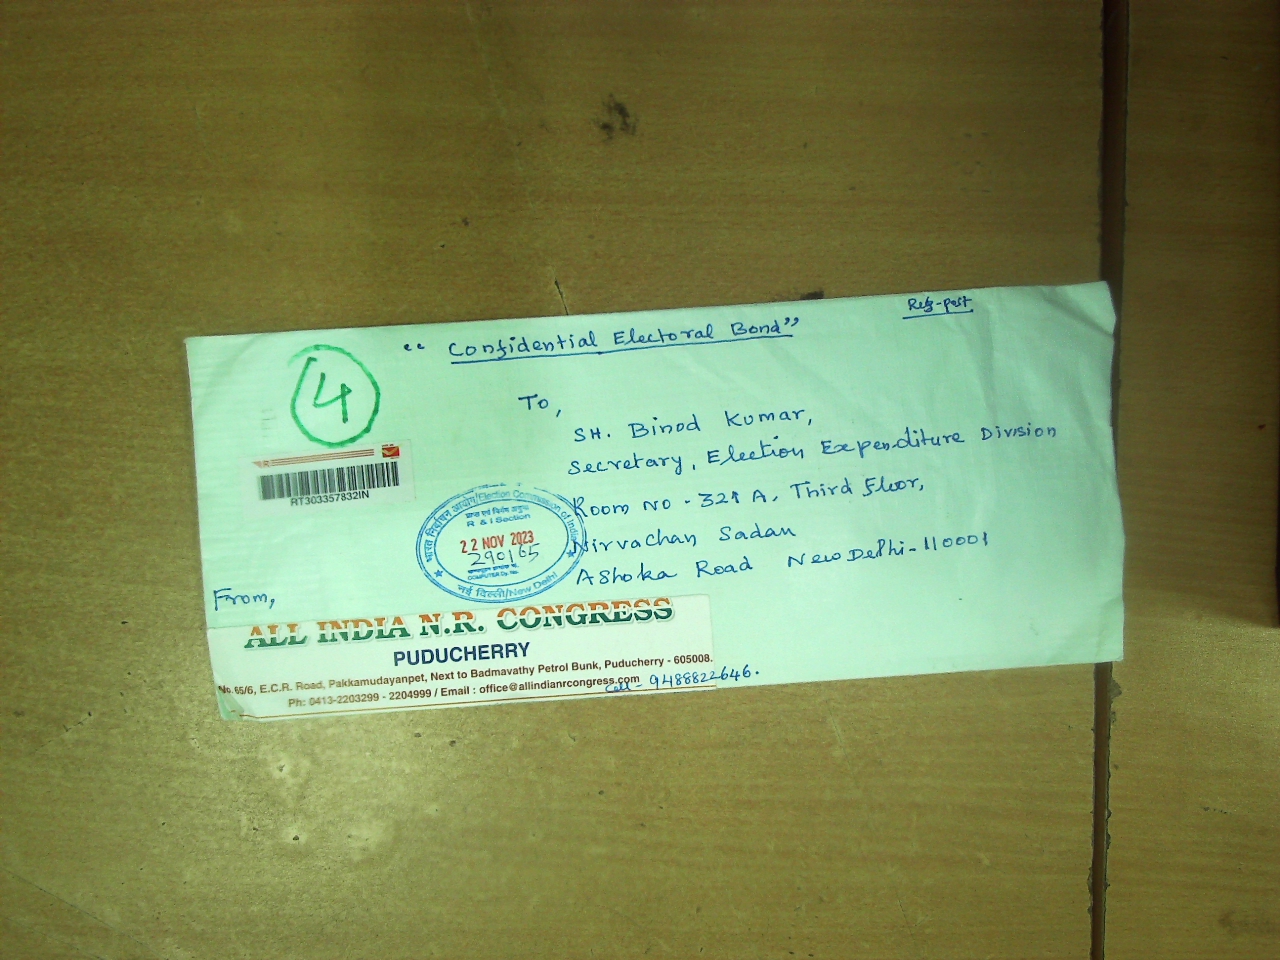 Reg-post
“Confidential Electoral Bond”
4
To,
SH. Binod Kumar,
Secretary, Election Expenditure Division
Room No - 321 A, Third Floor,
Nirvachan Sadan
Ashoka Road New Delhi-110001
RT303357832IN
भारत निर्वाचन आयोग/Election Commission of India
R & I Section
22 NOV 2023
290165
COMPUTER Dy. No.
नई दिल्ली/New Delhi
From,
ALL INDIA N.R. CONGRESS
PUDUCHERRY
No.65/6, E.C.R. Road, Pakkamudayanpet, Next to Badmavathy Petrol Bunk, Puducherry - 605008.
Ph: 0413-2203299 - 2204999 / Email : office@allindianrcongress.com
Cell - 9488822646.